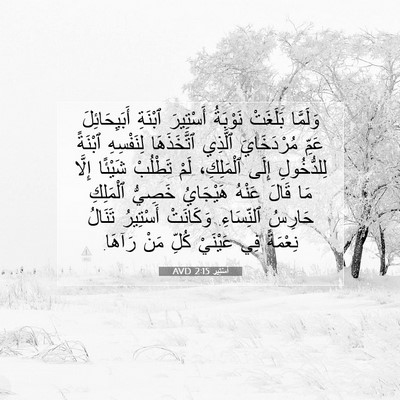 وَلَمَّا بَلَغَتْ نَوْبَةُ أَسْتِيرَ ٱبْنَةِ أَبِيجَائِلَ
عَمِّ مُرْدَخَايَ ٱلَّذِي ٱتَّخَذَهَا لِنَفْسِهِ ٱبْنَةً
لِلدُّخُولِ إِلَى ٱلْمَلِكِ، لَمْ تَطْلُبْ شَيْئًا إِلَّا
مَا قَالَ عَنْهُ هَيْجَايُ خَصِيُّ ٱلْمَلِكِ
حَارِسُ ٱلنِّسَاءِ. وَكَانَتْ أَسْتِيرُ تَنَالُ
نِعْمَةً فِي عَيْنَيْ كُلِّ مَنْ رَآهَا.
أستير 2:15 AVD